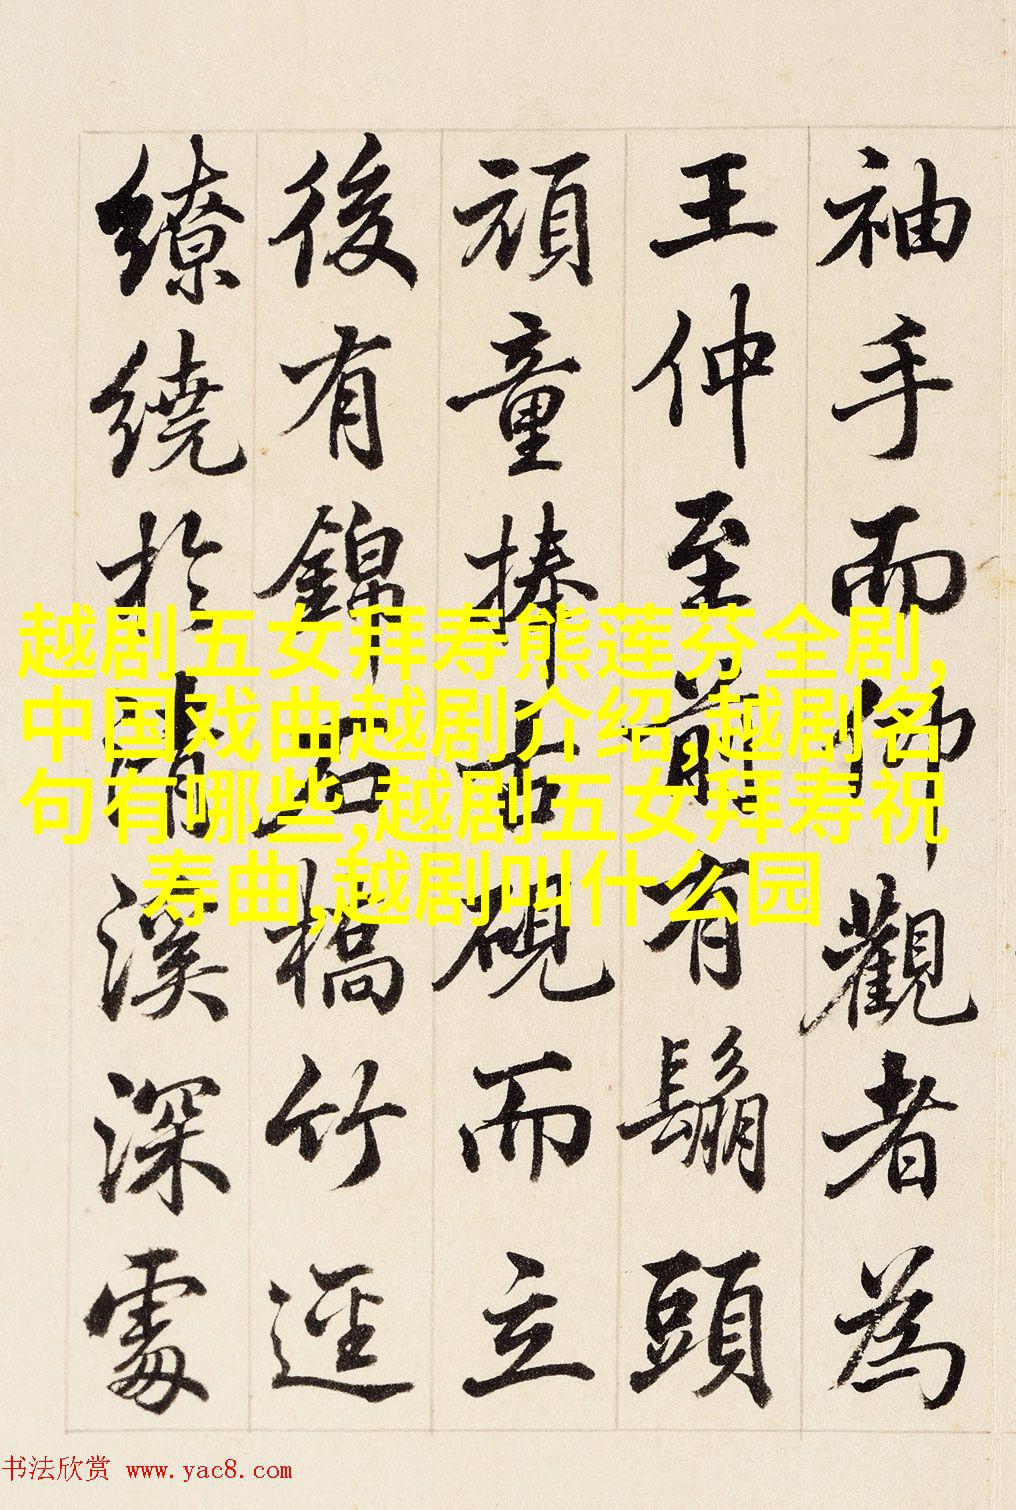 袖手而仰觀者為
王仲至前有鬅頭
頑童捧古硯而立
後有錦石橋竹逕
繚繞於清溪深處
越剧五女拜寿熊莲芬全剧,
中国戏曲越剧介绍,越剧名
句有哪些,越剧五女拜寿祝
寿曲,越剧叫什么园
书法欣赏 www.yac8.com